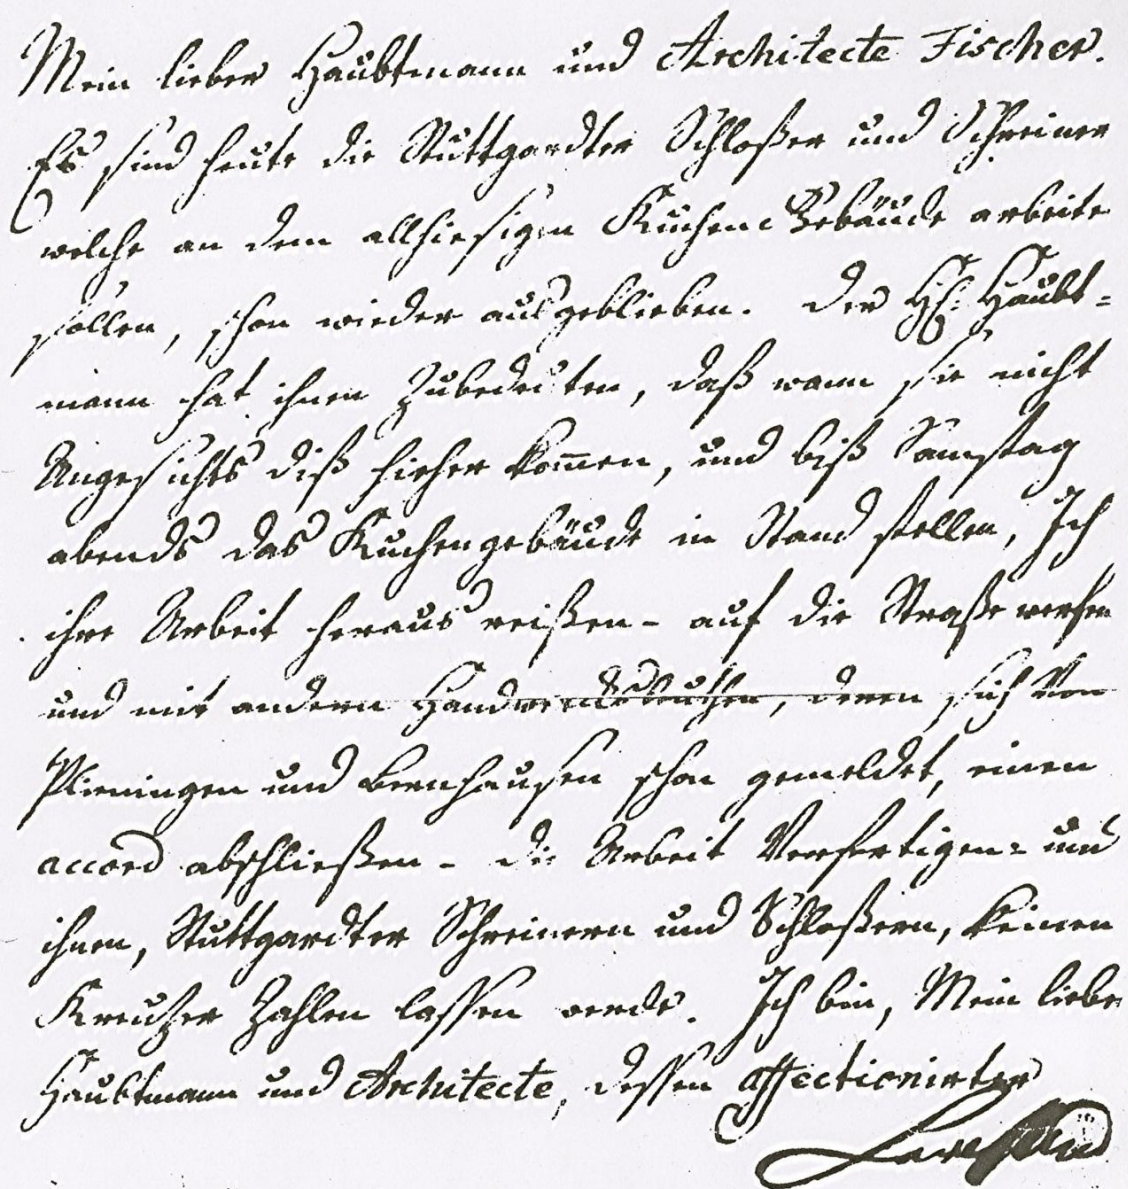 Mein lieber Haubtmann und Architecte Fischer.
Es sind heute die Stuttgardter Schloßer und Schreiner
welche an dem allhiesigen Kuchen Gebäude arbeite
sollen, schon wieder ausgeblieben. Der H. Haubt=
mann hat ihnen Zubedeuten, daß wann sie nicht
Angesichts diß hieher kom̄en, und biß Samstag
abends das Kuchengebäude in Stand stellen, Ich
ihre Arbeit heraus reißen - auf die Straße werfen
und mit andern Handwercksleuthen, deren sich Von
Plieningen und Bernhausen schon gemeldet, einen
accord abschließen - die Arbeit Verfertigen= und
ihnen, Stuttgardter Schreinern und Schloßern, keinen
Kreutzer Zahlen lassen werde. Ich bin, Mein lieber
Haubtmann und Architecte, dessen affectionirter